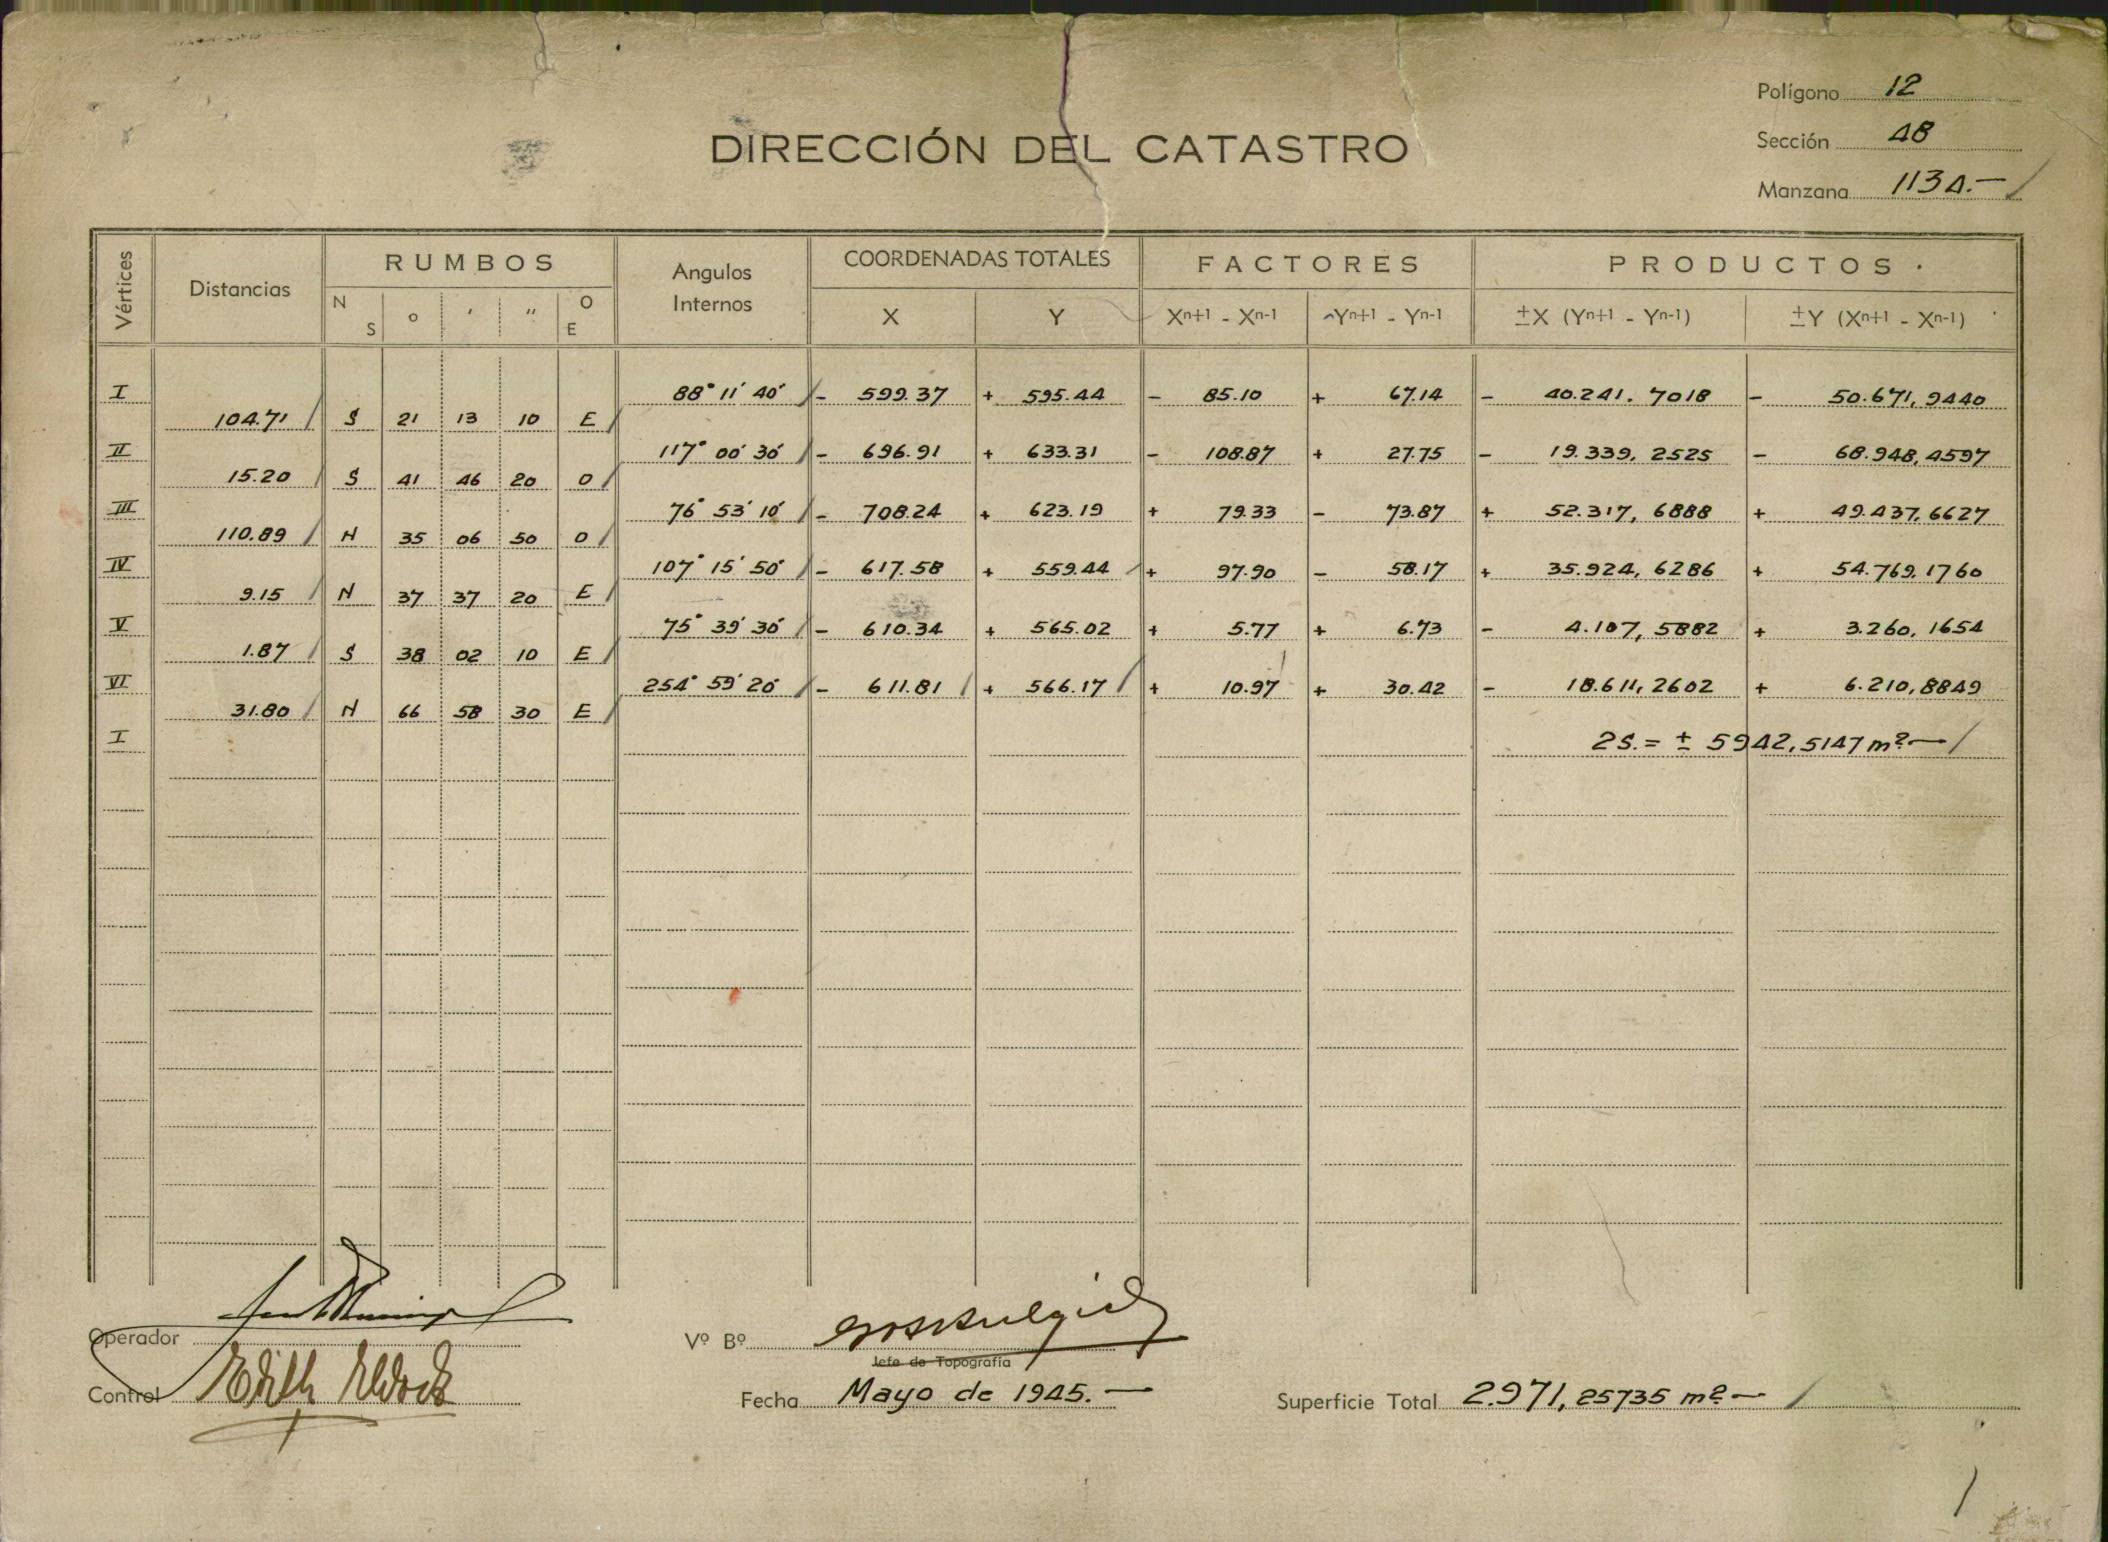 Polígono 12
DIRECCIÓN DEL CATASTRO
Sección 48
Manzana 1134.—
Vértices Distancias RUMBOS Angulos Internos COORDENADAS TOTALES FACTORES PRODUCTOS
N S o ' " O E X Y Xn+1 - Xn-1 Yn+1 - Yn-1 ±X (Yn+1 - Yn-1) ±Y (Xn+1 - Xn-1)
I 88° 11' 40" - 599.37 + 595.44 - 85.10 + 67.14 - 40.241.7018 - 50.671,9440
104.71 S 21 13 10 E
II 117° 00' 30" - 696.91 + 633.31 - 108.87 + 27.75 - 19.339,2525 - 68.948,4597
15.20 S 41 46 20 O
III 76° 53' 10" - 708.24 + 623.19 + 79.33 - 73.87 + 52.317,6888 + 49.437,6627
110.89 N 35 06 50 O
IV 107° 15' 50" - 617.58 + 559.44 + 97.90 - 58.17 + 35.924,6286 + 54.769,1760
9.15 N 37 37 20 E
V 75° 39' 30" - 610.34 + 565.02 + 5.77 + 6.73 - 4.107,5882 + 3.260,1654
1.87 S 38 02 10 E
VI 254° 59' 20" - 611.81 + 566.17 + 10.97 + 30.42 - 18.611,2602 + 6.210,8849
31.80 N 66 58 30 E
I 2S.= ± 5942,5147 m2.—
Operador
Vº Bº
Jefe de Topografía
Control Edith
Fecha Mayo de 1945.—
Superficie Total 2.971,25735 m2.—